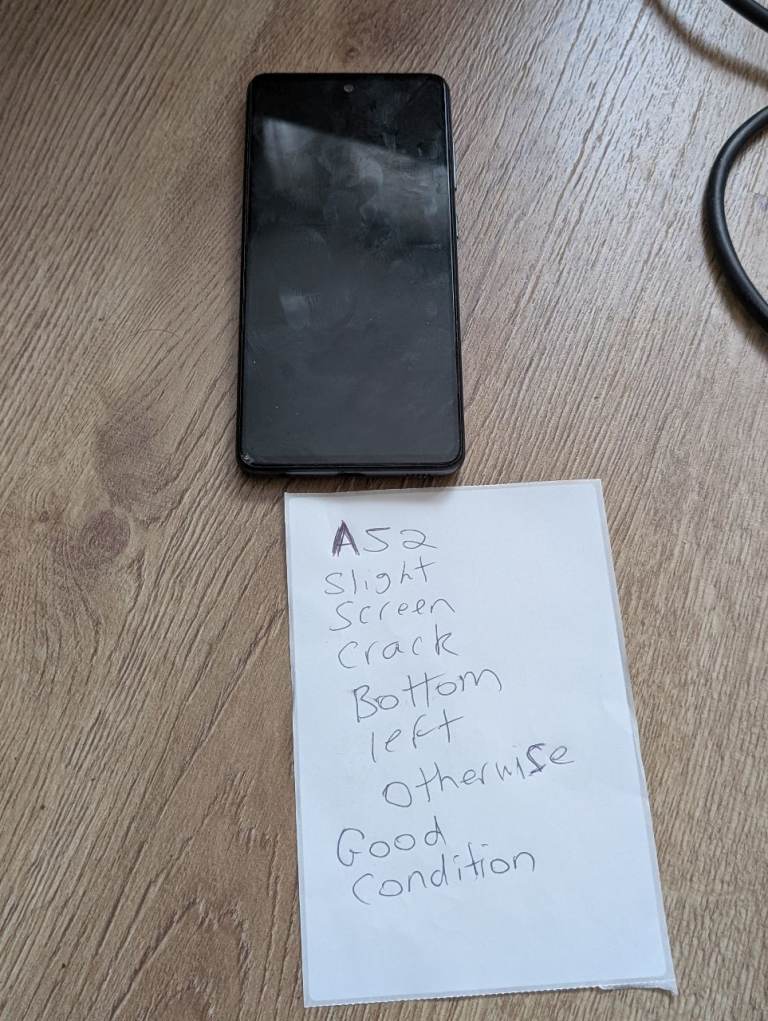 A52
Slight
Screen
Crack
Bottom
left
otherwise
Good
Condition